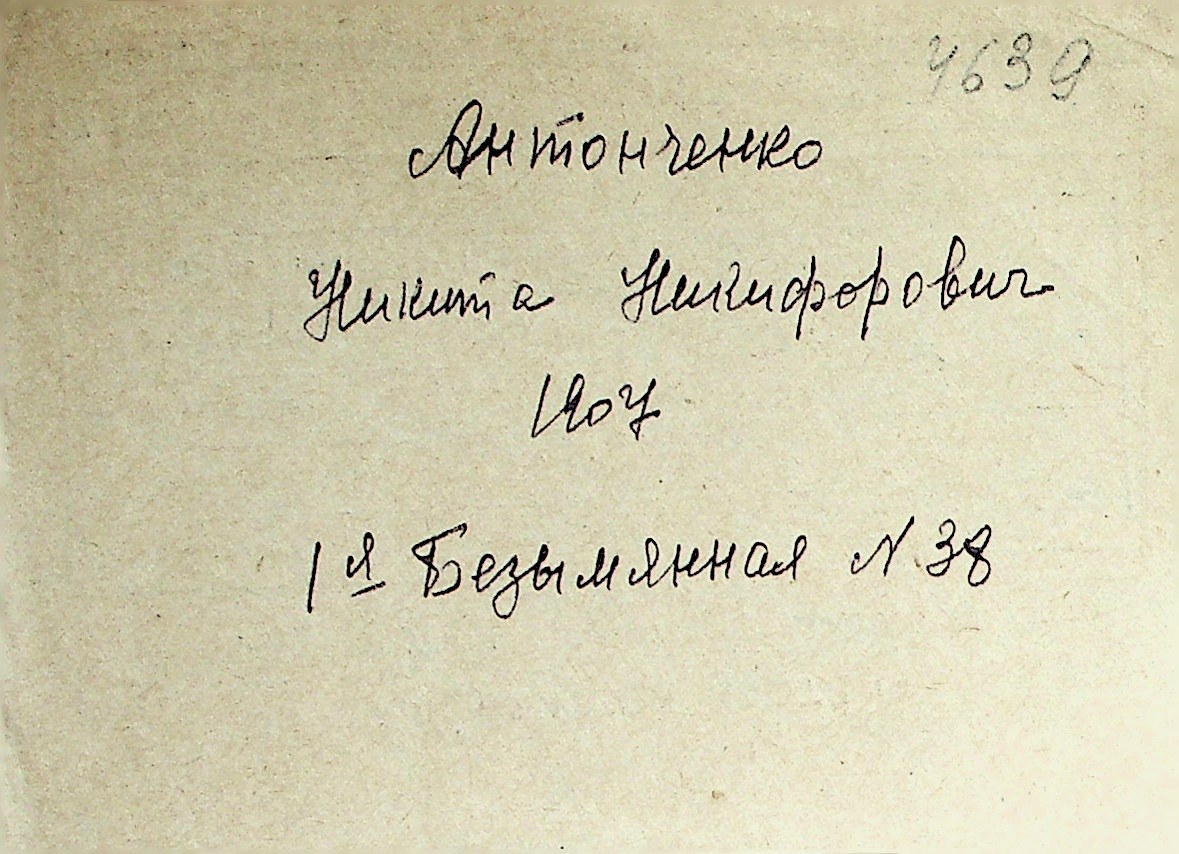 4639
Антонченко
Никита Никифорович
1907
1я Безымянная N 38